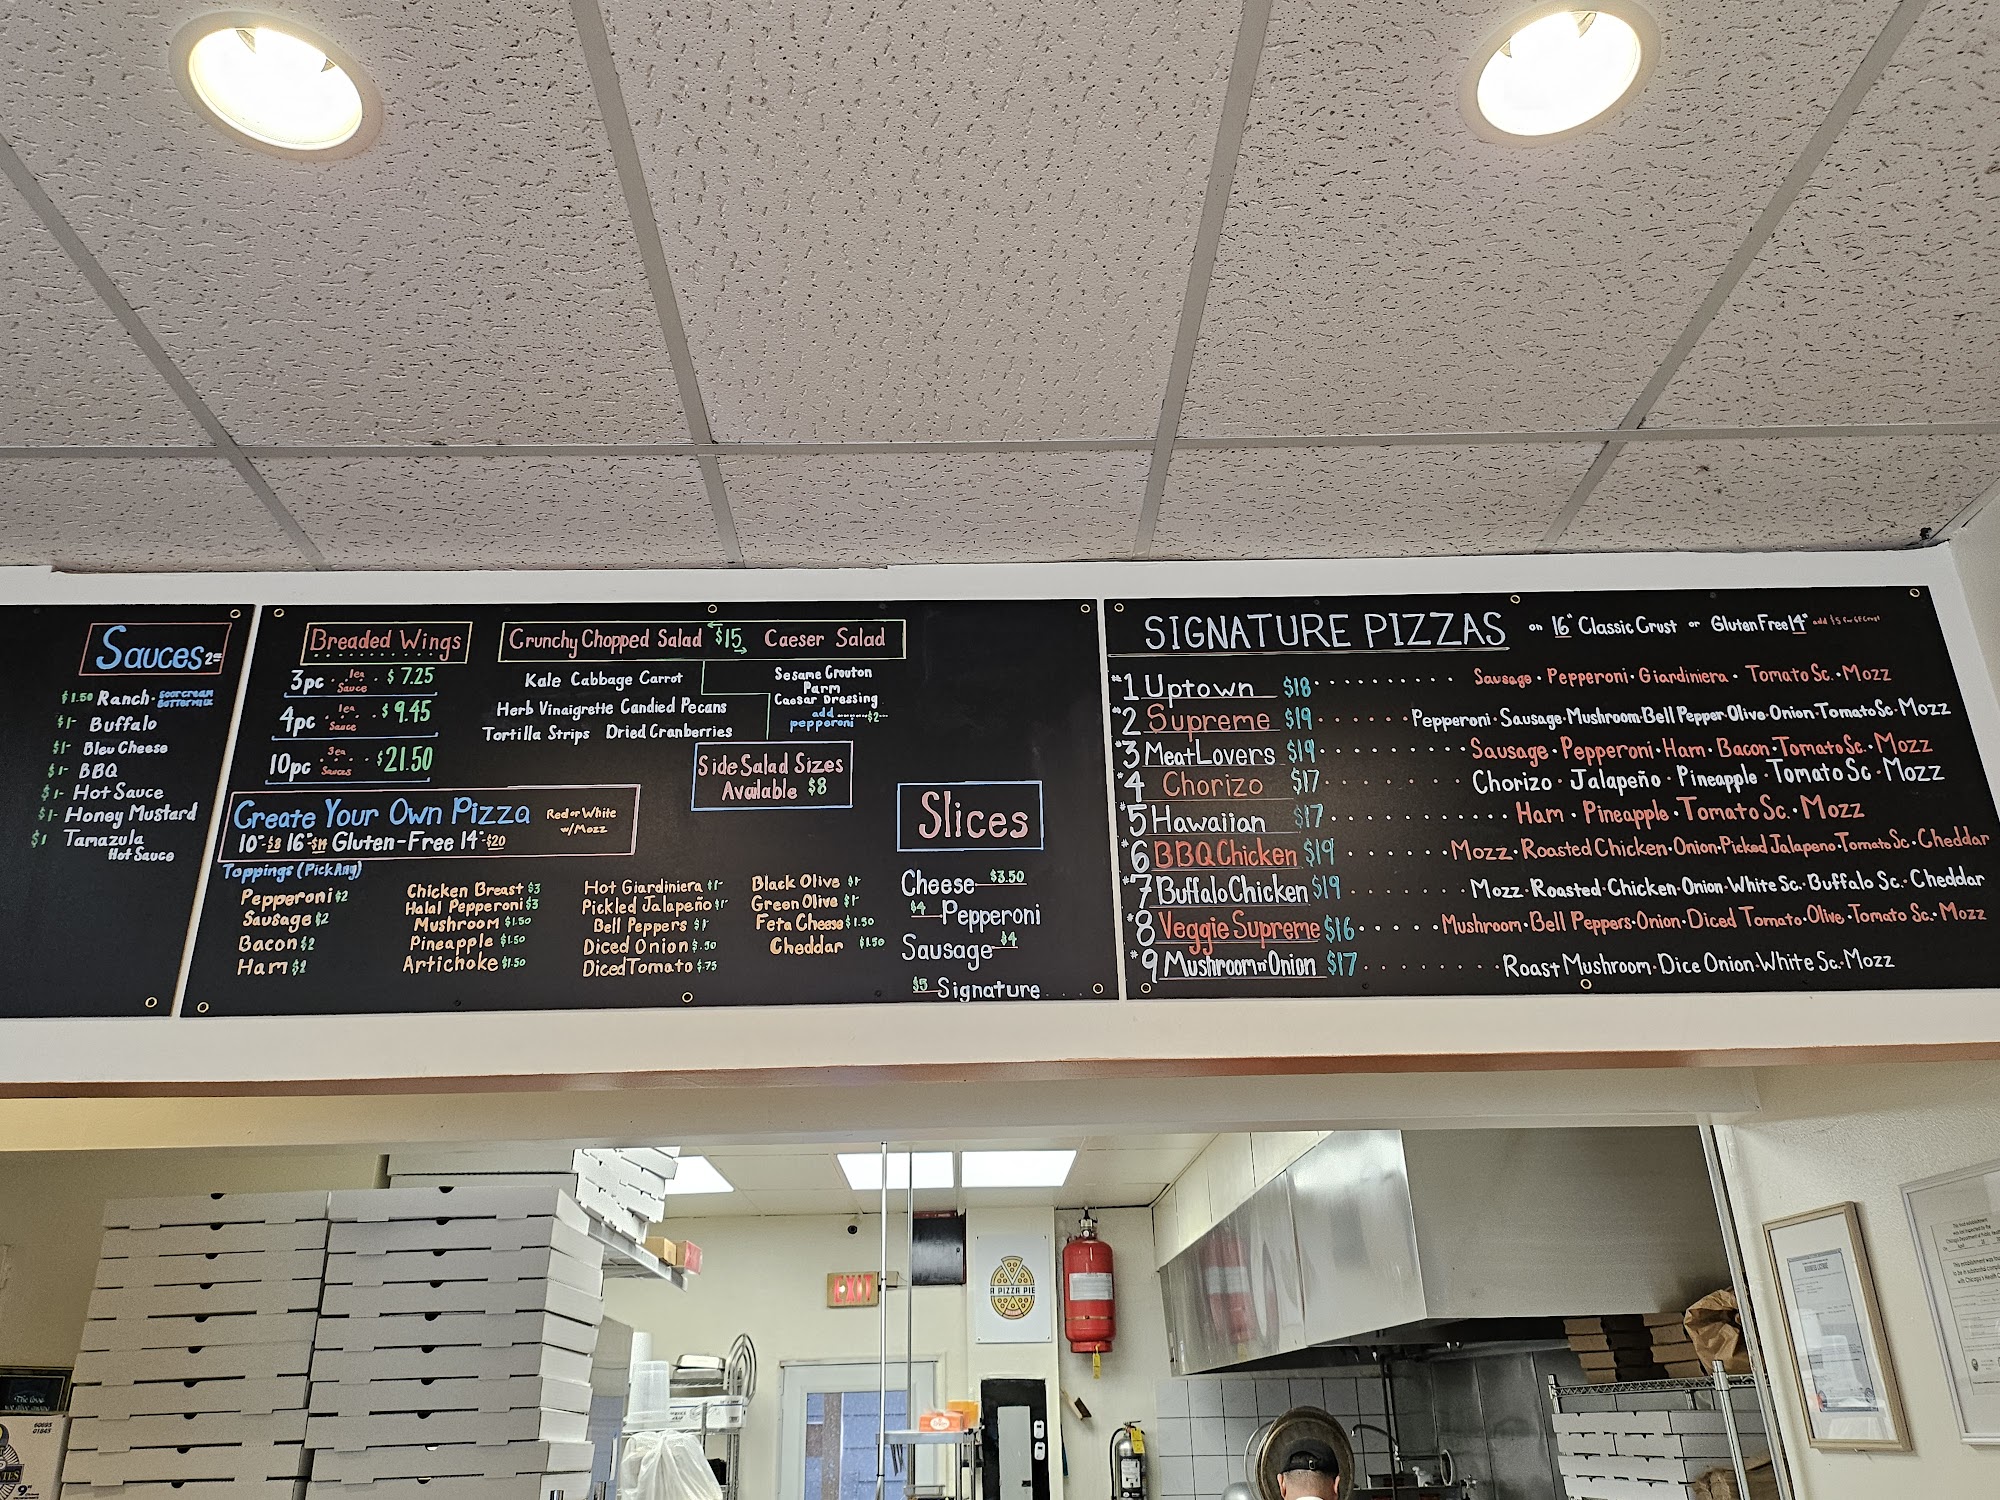 Sauces 2oz
$1.50 Ranch. sourcream
buttermilk
$1- Buffalo
$1- Bleu Cheese
$1- BBQ
$1- Hot Sauce
$1- Honey Mustard
$1 Tamazula
Hot Sauce
Breaded Wings
3pc 1ea Sauce $7.25
4pc 1ea Sauce $9.45
10pc 3ea Sauces $21.50
Crunchy Chopped Salad $15 Caeser Salad
Kale Cabbage Carrot
Herb Vinaigrette Candied Pecans
Tortilla Strips Dried Cranberries
Sesame Crouton
Parm
Caesar Dressing
add $2
pepperoni
Side Salad Sizes
Available $8
Create Your Own Pizza Red or White
w/Mozz
10"-$8 16"-$14 Gluten-Free 14"-$20
Toppings (Pick Any)
Pepperoni $2
Sausage $2
Bacon $2
Ham $2
Chicken Breast $3
Halal Pepperoni $3
Mushroom $1.50
Pineapple $1.50
Artichoke $1.50
Hot Giardiniera $1-
Pickled Jalapeño $1-
Bell Peppers $1-
Diced Onion $.50
Diced Tomato $.75
Black Olive $1-
Green Olive $1-
Feta Cheese $1.50
Cheddar $1.50
Slices
Cheese $3.50
$4 Pepperoni
Sausage $4
$5 Signature
SIGNATURE PIZZAS on 16" Classic Crust or Gluten Free 14" add $5 for GF Crust
#1 Uptown $18 Sausage · Pepperoni · Giardiniera · Tomato Sc. · Mozz
#2 Supreme $19 Pepperoni · Sausage · Mushroom · Bell Pepper · Olive · Onion · Tomato Sc · Mozz
#3 Meat Lovers $19 Sausage · Pepperoni · Ham · Bacon · Tomato Sc. · Mozz
#4 Chorizo $17 Chorizo · Jalapeño · Pineapple · Tomato Sc · Mozz
#5 Hawaiian $17 Ham · Pineapple · Tomato Sc. · Mozz
#6 BBQ Chicken $19 Mozz · Roasted Chicken · Onion · Picked Jalapeno · Tomato Sc. · Cheddar
#7 Buffalo Chicken $19 Mozz · Roasted · Chicken · Onion · White Sc. · Buffalo Sc. · Cheddar
#8 Veggie Supreme $16 Mushroom · Bell Peppers · Onion · Diced Tomato · Olive · Tomato Sc. · Mozz
#9 Mushroom n' Onion $17 Roast Mushroom · Dice Onion · White Sc. · Mozz
EXIT
A PIZZA PIE
60695
01845
9"